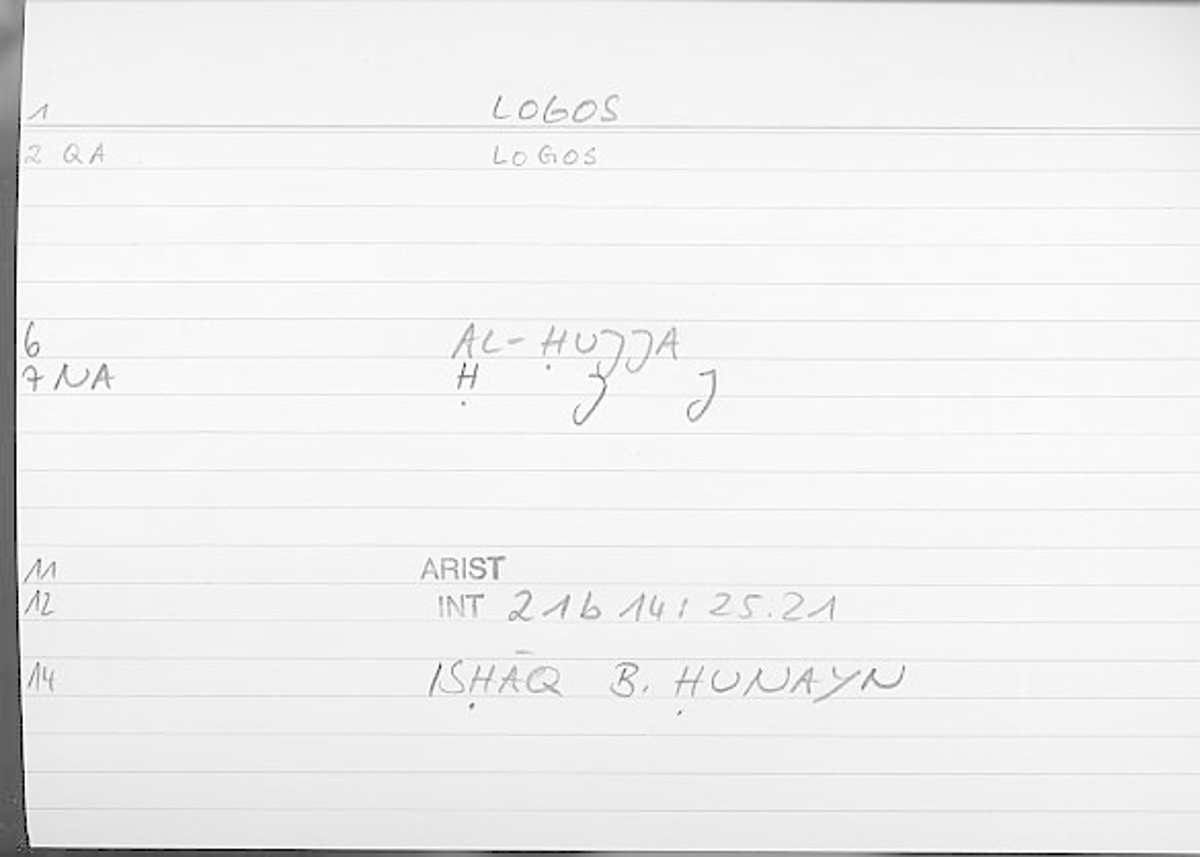 1 LOGOS
2 QA LOGOS
6 AL-ḤUJJA
7 NA Ḥ J J
11 ARIST
12 INT 21b 14: 25.21
14 ISḤĀQ B. ḤUNAYN